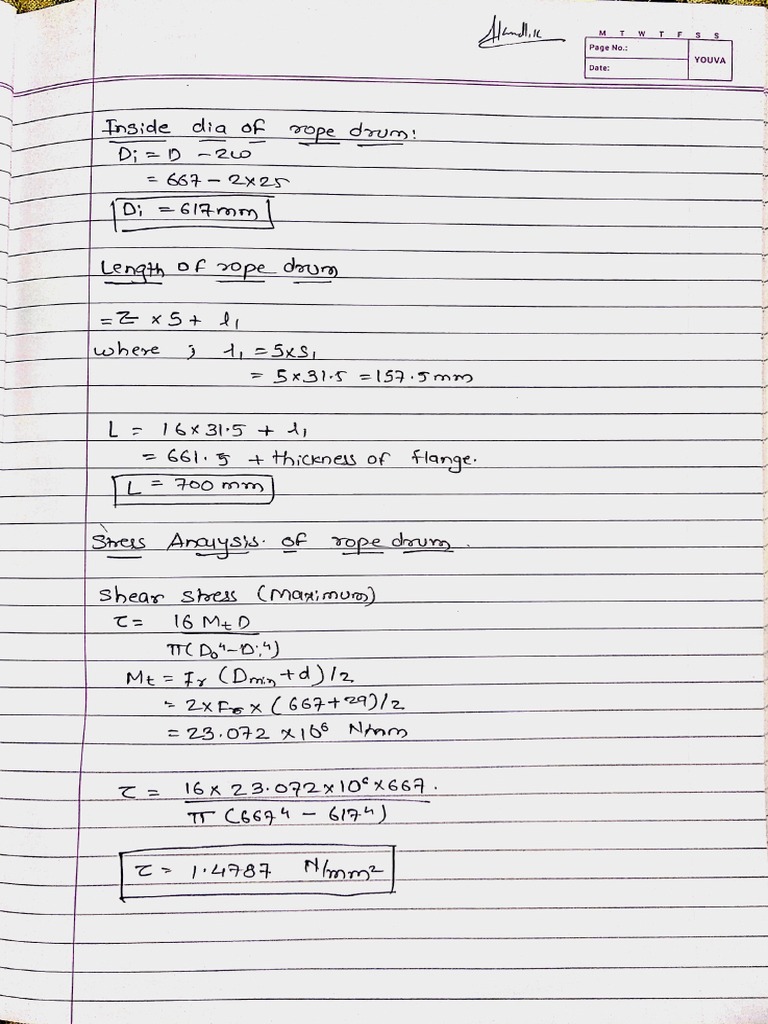 M T W T F S S
Page No.:
YOUVA
Date:
Inside dia of rope drum:
Di = D - 2ω
= 667 - 2×25
Di = 617mm
Length of rope drum
= Z × S + l₁
where ; l₁ = 5×S₁
= 5×31.5 = 157.5mm
L = 16×31.5 + l₁
= 661.5 + thickness of flange.
L = 700mm
Stress Analysis. of rope drum.
Shear stress (Maximum)
τ = 16 Mt D
π(Do⁴-Di⁴)
Mt = Fr (Dmin+d)/2
= 2×Fr × (667+29)/2
= 23.072 ×10⁶ N/mm
τ = 16×23.072×10⁶×667.
π (667⁴ - 617⁴)
τ = 1.4787 N/mm²